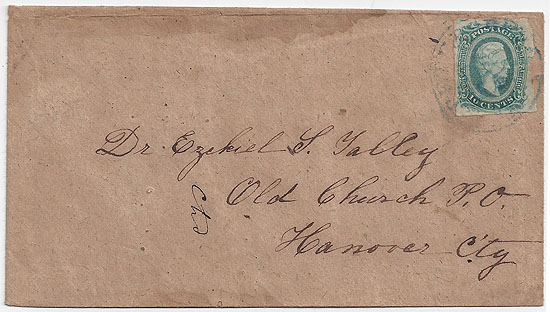 POSTAGE
10 CENTS
Dr. Ezekiel S. Talley
Old Church P.O.
Hanover Cty